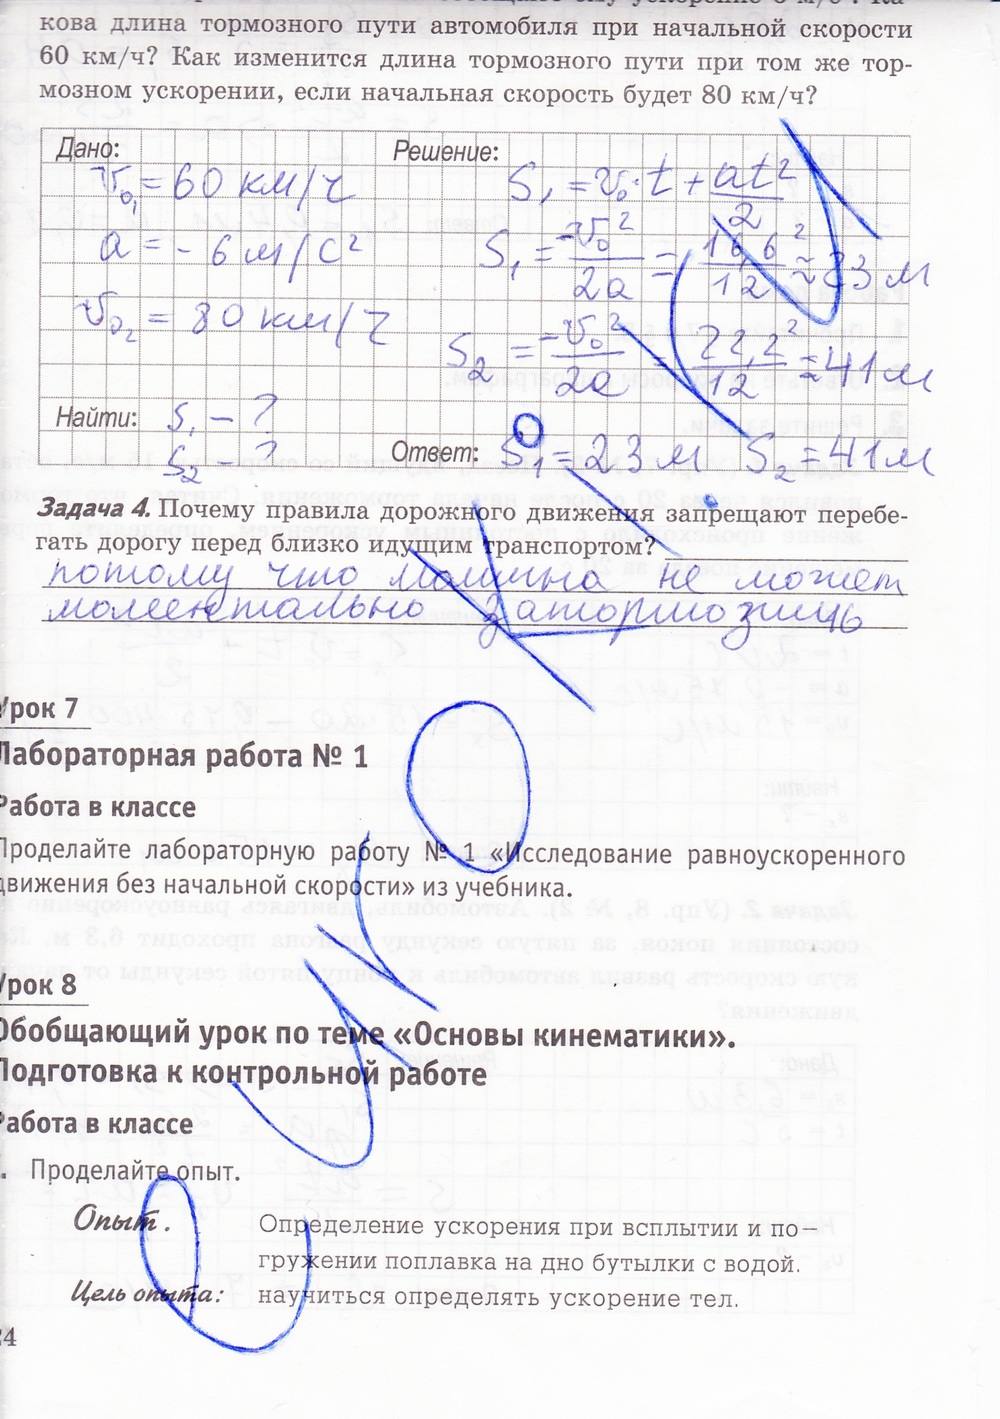 кова длина тормозного пути автомобиля при начальной скорости
60 км/ч? Как изменится длина тормозного пути при том же тор-
мозном ускорении, если начальная скорость будет 80 км/ч?
Дано: Решение:
v₀₁ = 60 км/ч S₁ = v₀·t + at²/2
a = -6 м/с² S₁ = -v₀²/2a = 16,6²/12 ≈ 23 м
v₀₂ = 80 км/ч S₂ = -v₀²/2a = 22,2²/12 ≈ 41 м
Найти: S₁ - ?
S₂ ? Ответ: S₁ = 23 м S₂ = 41 м
Задача 4. Почему правила дорожного движения запрещают перебе-
гать дорогу перед близко идущим транспортом?
потому что машина не может
моментально затормозить
Урок 7
Лабораторная работа № 1
Работа в классе
Проделайте лабораторную работу № 1 «Исследование равноускоренного
движения без начальной скорости» из учебника.
Урок 8
Обобщающий урок по теме «Основы кинематики».
Подготовка к контрольной работе
Работа в классе
. Проделайте опыт.
Опыт. Определение ускорения при всплытии и по-
гружении поплавка на дно бутылки с водой.
Цель опыта: научиться определять ускорение тел.
24